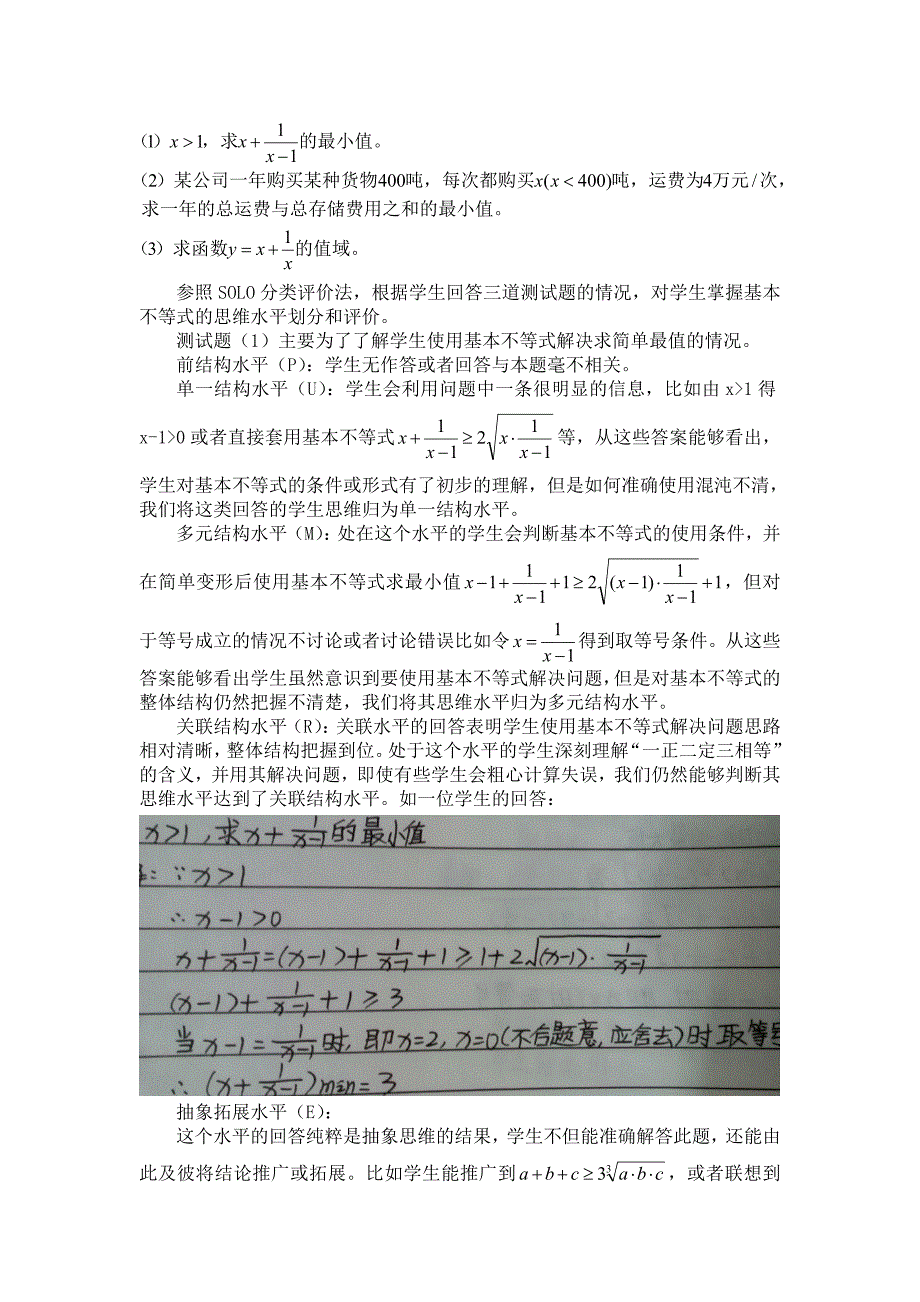 (1) x>1，求x+1/(x−1)的最小值。
(2) 某公司一年购买某种货物400吨，每次都购买x(x<400)吨，运费为4万元/次，
求一年的总运费与总存储费用之和的最小值。
(3) 求函数y=x+1/x的值域。
参照 SOLO 分类评价法，根据学生回答三道测试题的情况，对学生掌握基本
不等式的思维水平划分和评价。
测试题（1）主要为了了解学生使用基本不等式解决求简单最值的情况。
前结构水平（P）：学生无作答或者回答与本题毫不相关。
单一结构水平（U）：学生会利用问题中一条很明显的信息，比如由 x>1 得
x-1>0 或者直接套用基本不等式 x+1/(x−1)≥2√(x·1/(x−1)) 等，从这些答案能够看出，
学生对基本不等式的条件或形式有了初步的理解，但是如何准确使用混沌不清，
我们将这类回答的学生思维归为单一结构水平。
多元结构水平（M）：处在这个水平的学生会判断基本不等式的使用条件，并
在简单变形后使用基本不等式求最小值 x−1+1/(x−1)+1≥2√((x−1)·1/(x−1))+1，但对
于等号成立的情况不讨论或者讨论错误比如令 x=1/(x−1) 得到取等号条件。从这些
答案能够看出学生虽然意识到要使用基本不等式解决问题，但是对基本不等式的
整体结构仍然把握不清楚，我们将其思维水平归为多元结构水平。
关联结构水平（R）：关联水平的回答表明学生使用基本不等式解决问题思路
相对清晰，整体结构把握到位。处于这个水平的学生深刻理解“一正二定三相等”
的含义，并用其解决问题，即使有些学生会粗心计算失误，我们仍然能够判断其
思维水平达到了关联结构水平。如一位学生的回答：
x>1，求x+1/(x−1)的最小值
∵x>1
∴x−1>0
x+1/(x−1)=(x−1)+1/(x−1)+1≥1+2√((x−1)·1/(x−1))
(x−1)+1/(x−1)+1≥3
当x−1=1/(x−1)时，即x=2，x=0(不合题意，应舍去)时取等号
∴(x+1/(x−1))min=3
抽象拓展水平（E）：
这个水平的回答纯粹是抽象思维的结果，学生不但能准确解答此题，还能由
此及彼将结论推广或拓展。比如学生能推广到 a+b+c≥3∛(a·b·c)，或者联想到